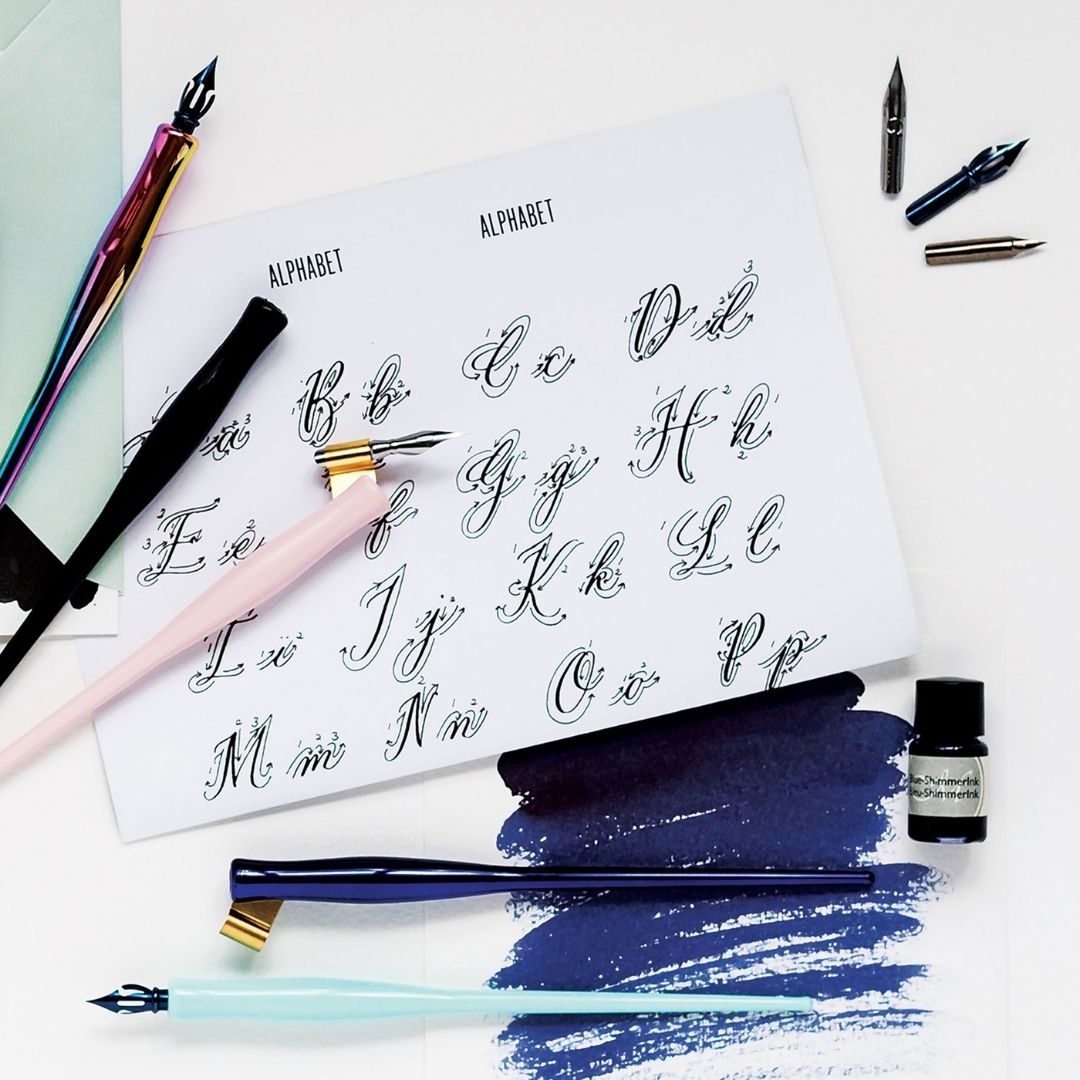 ALPHABET ALPHABET
a B b C c D d
E e f G g H h
I i J j K k L l
M m N n O o P p
Blue-ShimmerInk
Bleu-ShimmerInk